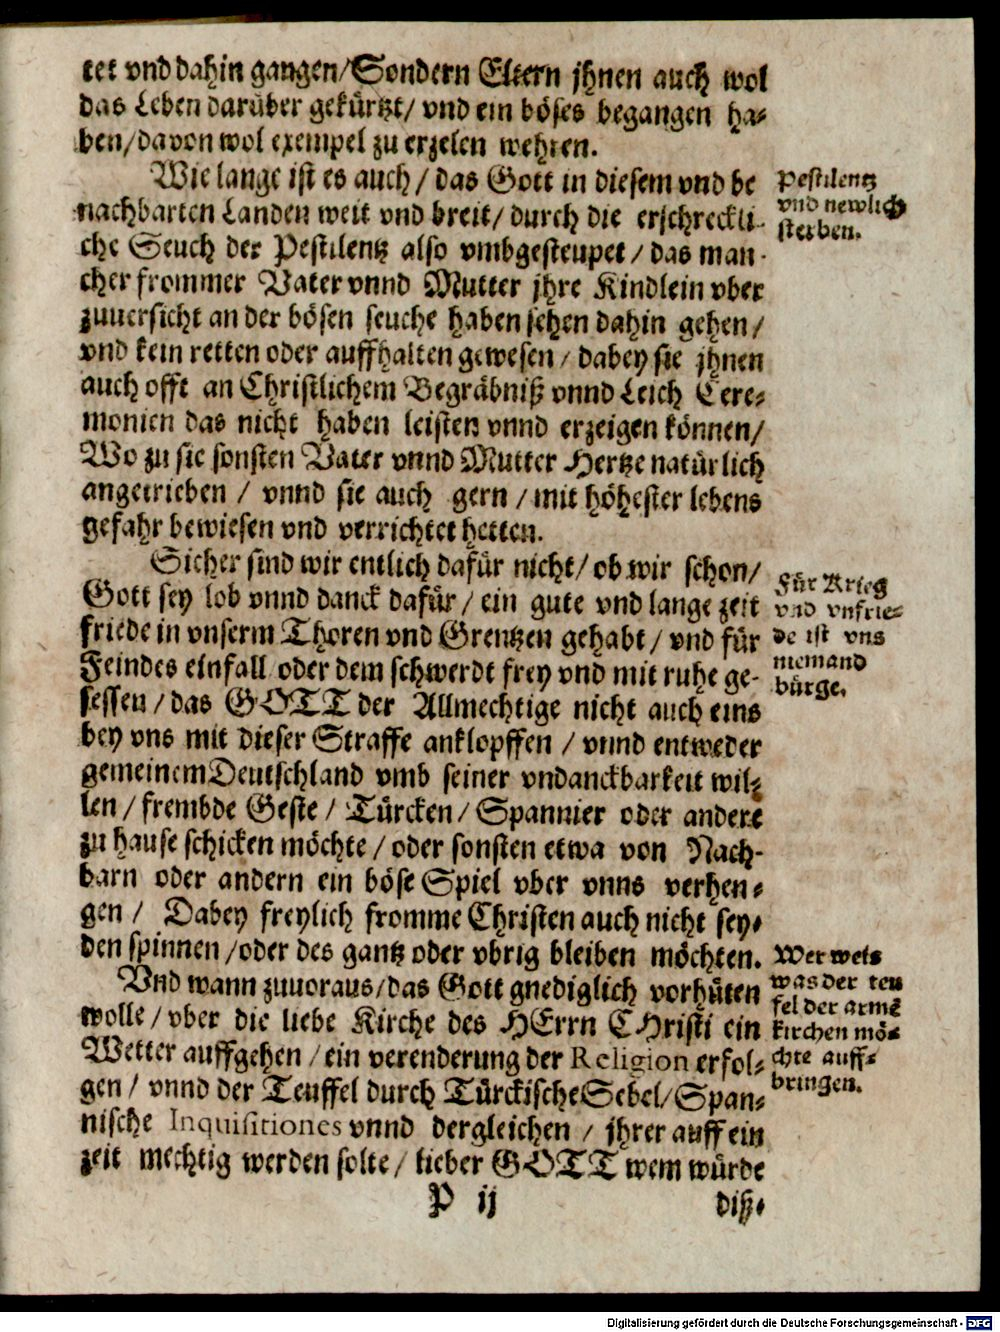 tet vnd dahin gangen/Sondern Eltern jhnen auch wol
das Leben darüber gekürtzt/ vnd ein böses begangen ha-
ben/davon wol exempel zu erzelen wehren.
Wie lange ist es auch/ das Gott in diesem vnd be
nachbarten Landen weit vnd breit/ durch die erschreckli-
che Seuch der Pestilentz also vmbgesteupet/ das man-
cher frommer Vater vnnd Mutter jhre Kindlein vber
zuuersicht an der bösen seuche haben sehen dahin gehen/
vnd kein retten oder auffhalten gewesen/ dabey sie jhnen
auch offt an Christlichem Begräbniß vnnd Leich Cere-
monien das nicht haben leisten vnnd erzeigen können/
Wo zu sie sonsten Vater vnnd Mutter Hertze natürlich
angetrieben / vnnd sie auch gern / mit höhester lebens
gefahr bewiesen vnd verrichtet hetten.
Pestilentz
vnd newlich
sterben.
Sicher sind wir entlich dafür nicht/ ob wir schon/
Gott sey lob vnnd danck dafür/ ein gute vnd lange zeit
friede in vnserm Thoren vnd Grentzen gehabt/ vnd für
Feindes einfall oder dem schwerdt frey vnd mit ruhe ge-
sessen/ das GOTT der Allmechtige nicht auch eins
bey vns mit dieser Straffe anklopffen / vnnd entweder
gemeinem Deutschland vmb seiner vndanckbarkeit wil-
len/ frembde Geste/ Türcken/ Spannier oder andere
zu hause schicken möchte/ oder sonsten etwa von Nach-
barn oder andern ein böse Spiel vber vnns verhen-
gen/ Dabey freylich fromme Christen auch nicht sey-
den spinnen/oder des gantz oder vbrig bleiben möchten.
Für Krieg
vnd vnfrie-
de ist vns
niemand
bürge.
Vnd wann zuuoraus/das Gott gnediglich vorhüten
wolle/ vber die liebe Kirche des HErrn CHristi ein
Wetter auffgehen/ ein verenderung der Religion erfol-
gen/ vnnd der Teuffel durch Türckische Sebel/Span-
nische Inquisitiones vnnd dergleichen / jhrer auff ein
zeit mechtig werden solte/ lieber GOTT wem würde
Wer weis
was der teu
fel der armē
kirchen mö-
chte auff-
bringen.
P ij
diß-
Digitalisierung gefördert durch die Deutsche Forschungsgemeinschaft - DFG